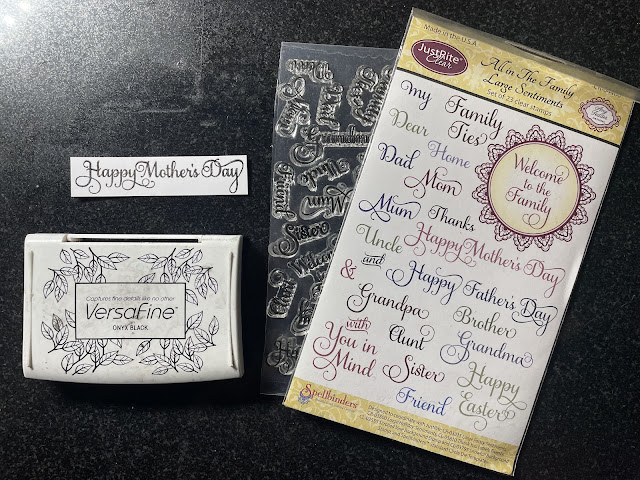 Happy Mother's Day
Captures fine details like no other
VersaFine™
ONYX BLACK
Made in the U.S.A.
JustRite®
Clear
All in The Family
Large Sentiments
Set of 23 clear stamps
My
Family
Ties
Dear
Home
Dad
Mom
Mum
Thanks
Welcome
to the
Family
Uncle
Happy Mother's Day
&
and
Happy Father's Day
Grandpa
Brother
with
You in
Mind
Aunt
Grandma
Sister
Happy
Easter
Friend
Spellbinders